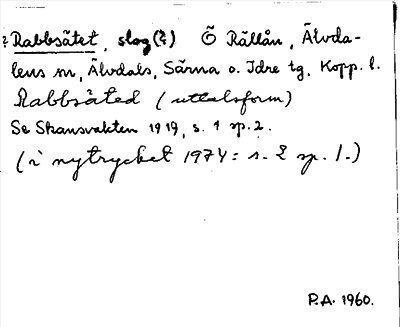 ? Rabbsätet, slog(?) Ö Rällån, Älvda-
lens sn, Älvdals, Särna o. Idre tg, Kopp. l.
Rabbsäted (uttalsform)
Se Skansvakten 1919, s. 1 sp. 2.
(i nytrycket 1974: s. 2 sp. 1.)
P.A. 1960.